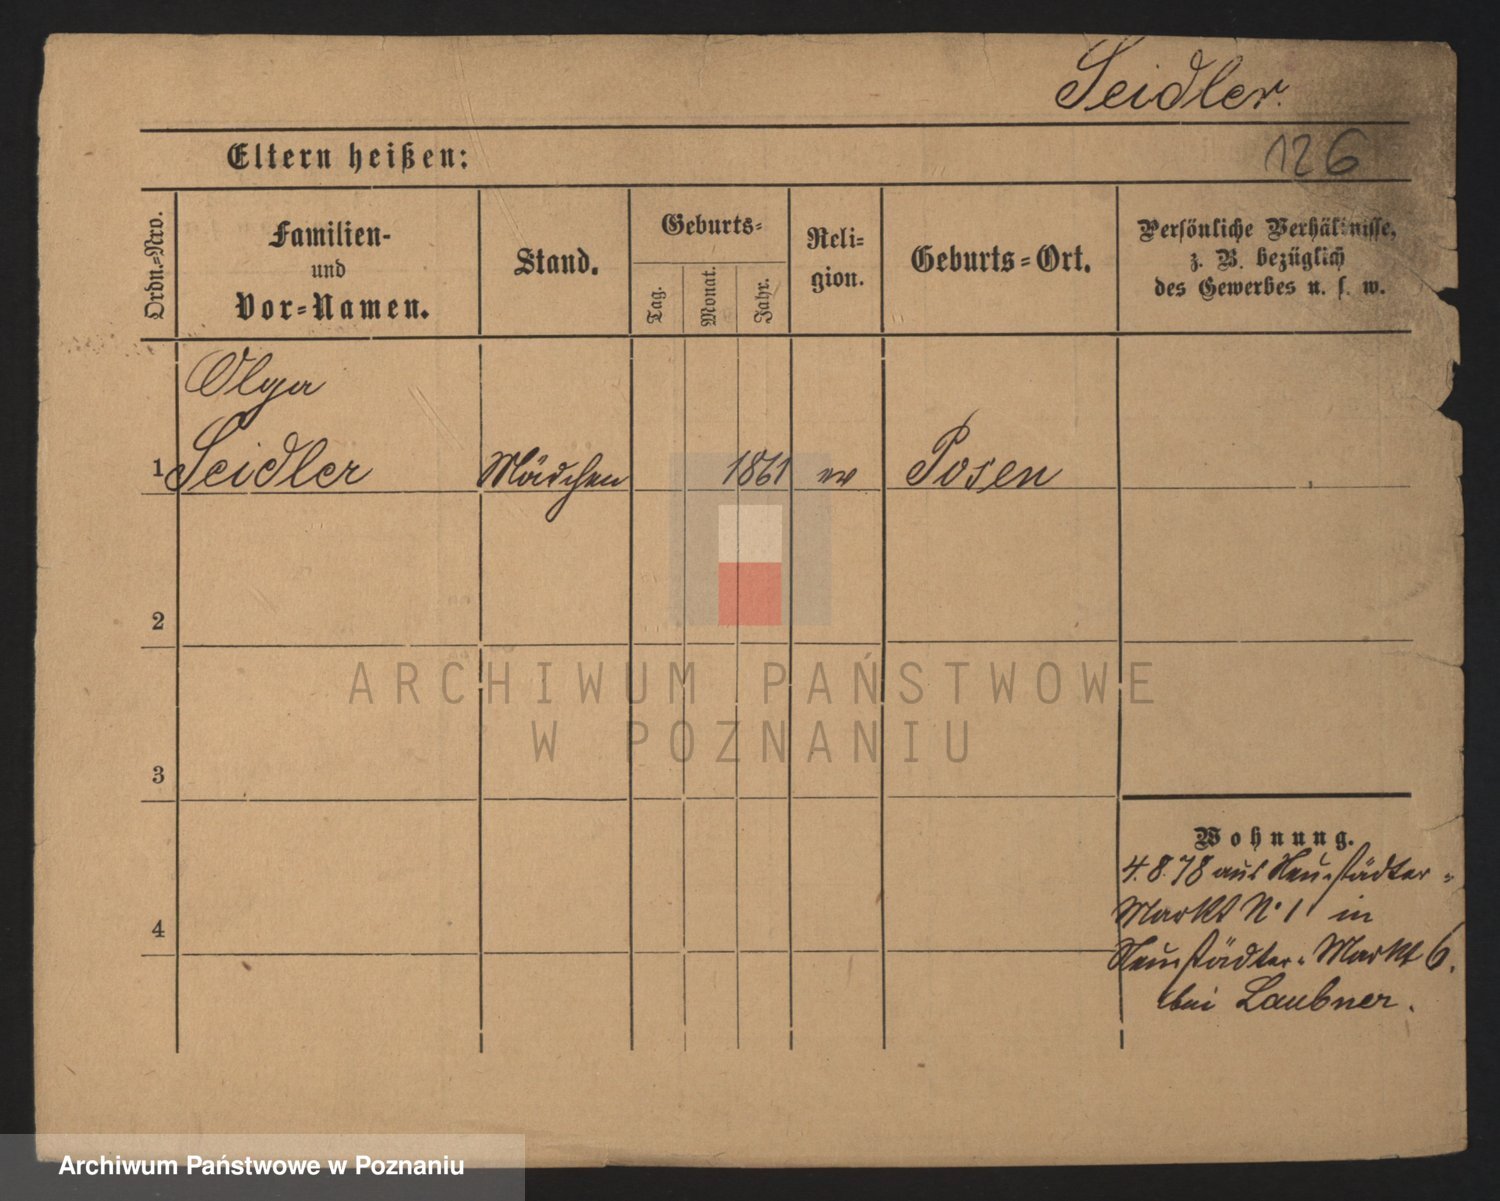 Seidler.
Eltern heißen:
126
Ordn.-Nro.
Familien-
und
Vor-Namen.
Stand.
Geburts-
Tag.
Monat.
Jahr.
Reli-
gion.
Geburts-Ort.
Persönliche Verhältnisse,
z. B. bezüglich
des Gewerbes u. s. w.
Olga
1 Seidler Mädchen 1861 ev Posen
2
3
4
Wohnung.
4.8.78 aus Neustädter-
Markt N. 1 in
Neustädter-Markt 6.
bei Laubner.
ARCHIWUM PAŃSTWOWE
W POZNANIU
Archiwum Państwowe w Poznaniu